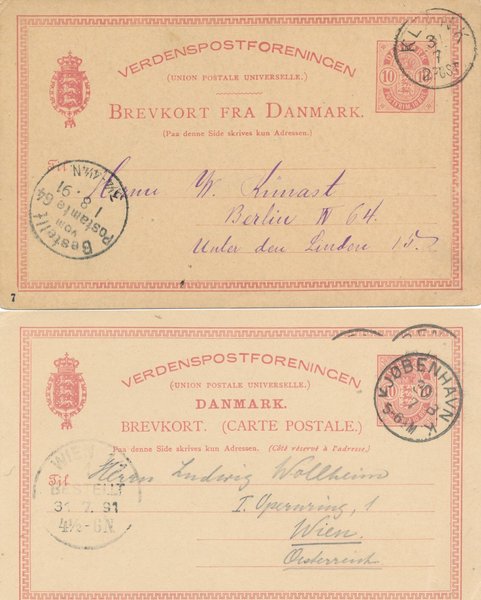 VERDENSPOSTFORENINGEN
(UNION POSTALE UNIVERSELLE.)
BREVKORT FRA DANMARK.
(Paa denne Side skrives kun Adressen.)
10
Til
Herrn W. Künast
Berlin W 64.
Unter den Linden 15
Bestellt
vom
Postamte 64
1 8 91
7
VERDENSPOSTFORENINGEN
(UNION POSTALE UNIVERSELLE.)
DANMARK.
BREVKORT. (CARTE POSTALE.)
(Paa denne Side skrives kun Adressen. (Côté réservé à l'adresse.)
KJØBENHAVN K
Til
Herrn Ludwig Wollheim
I. Operuring, 1
Wien
Oesterreich
WIEN
BESTELLT
31.7.91
4½-6.N